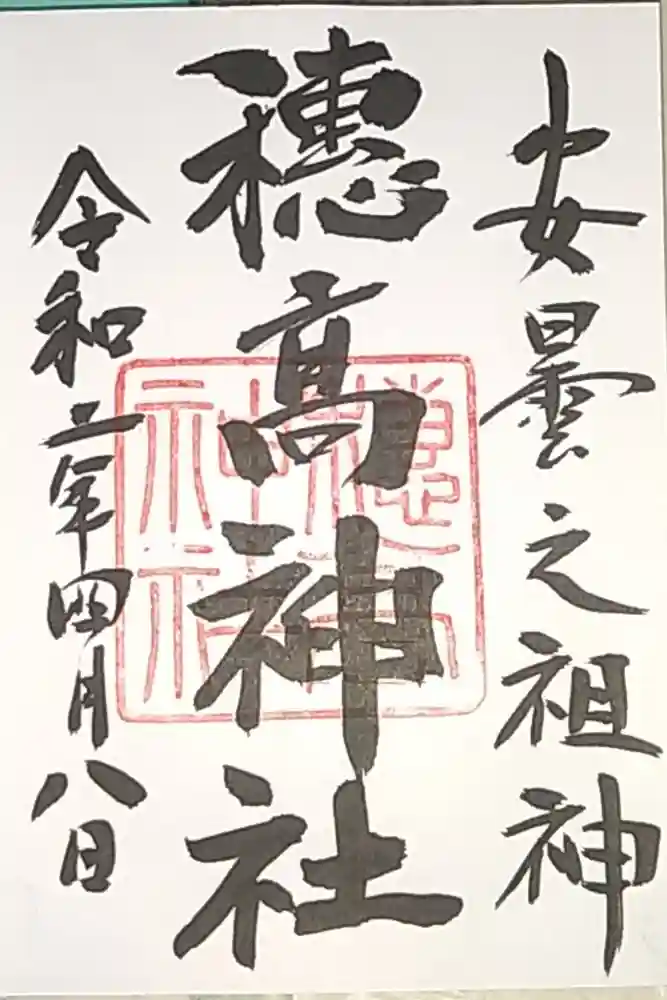 安曇之祖神
穂髙神社
令和二年四月八日